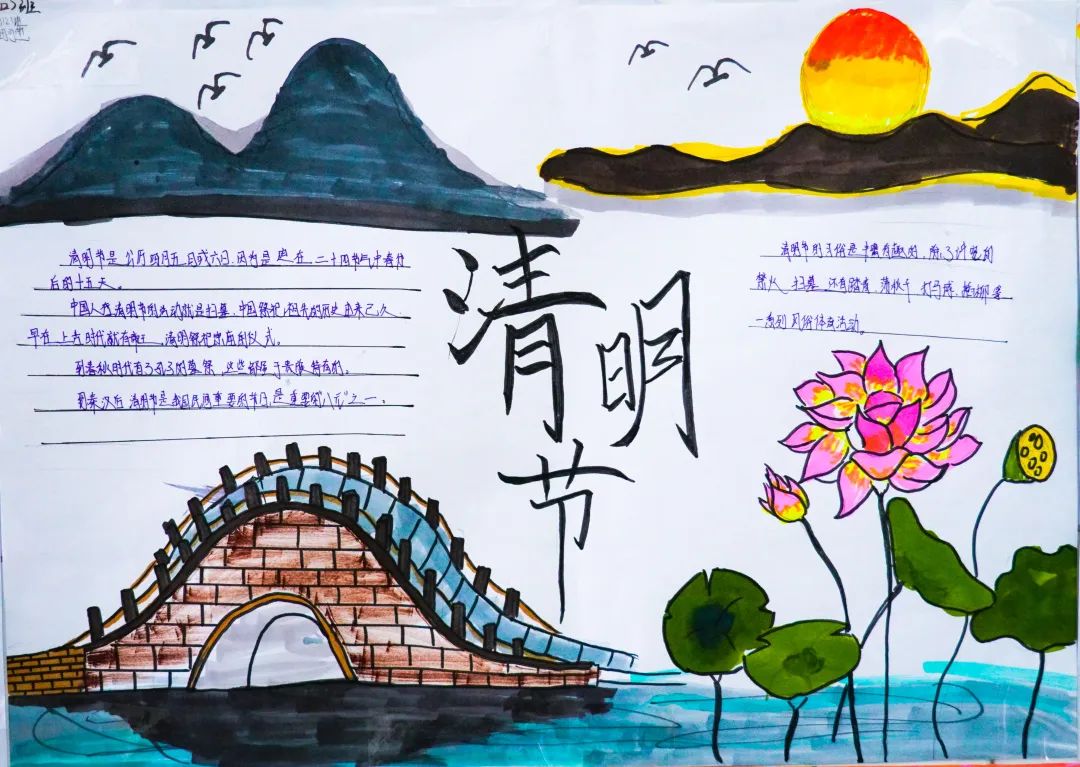 班
清明节是公历四月五日或六日,因为是在二十四节气中春分
后的十五天。
中国人在清明节的活动就是扫墓,中国祭祀祖先的历史由来已久
早在上古时代就有 清明祭祀 仪式。
到春秋时代有了 的墓祭,这些都属于贵族特有的。
到秦汉后清明节是我国民间重要的节日,是重要的"八节"之一。
清明节
清明节的习俗是丰富有趣的,除了讲究的
禁火 扫墓 还有踏青 荡秋千 打马球 插柳等
一系列风俗体育活动。